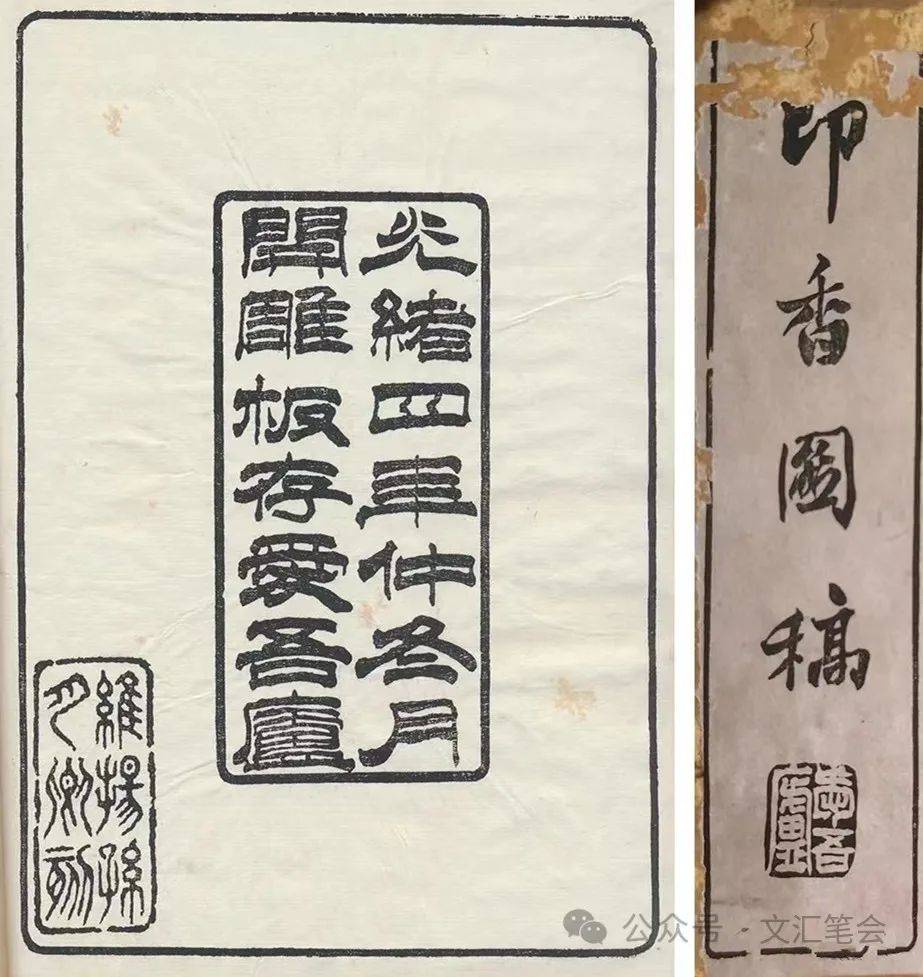 光緒四年仲冬月
開雕板存愛吾廬
維揚孫
月卿刻
印香圖稿
愛吾廬
公众号·文汇笔会